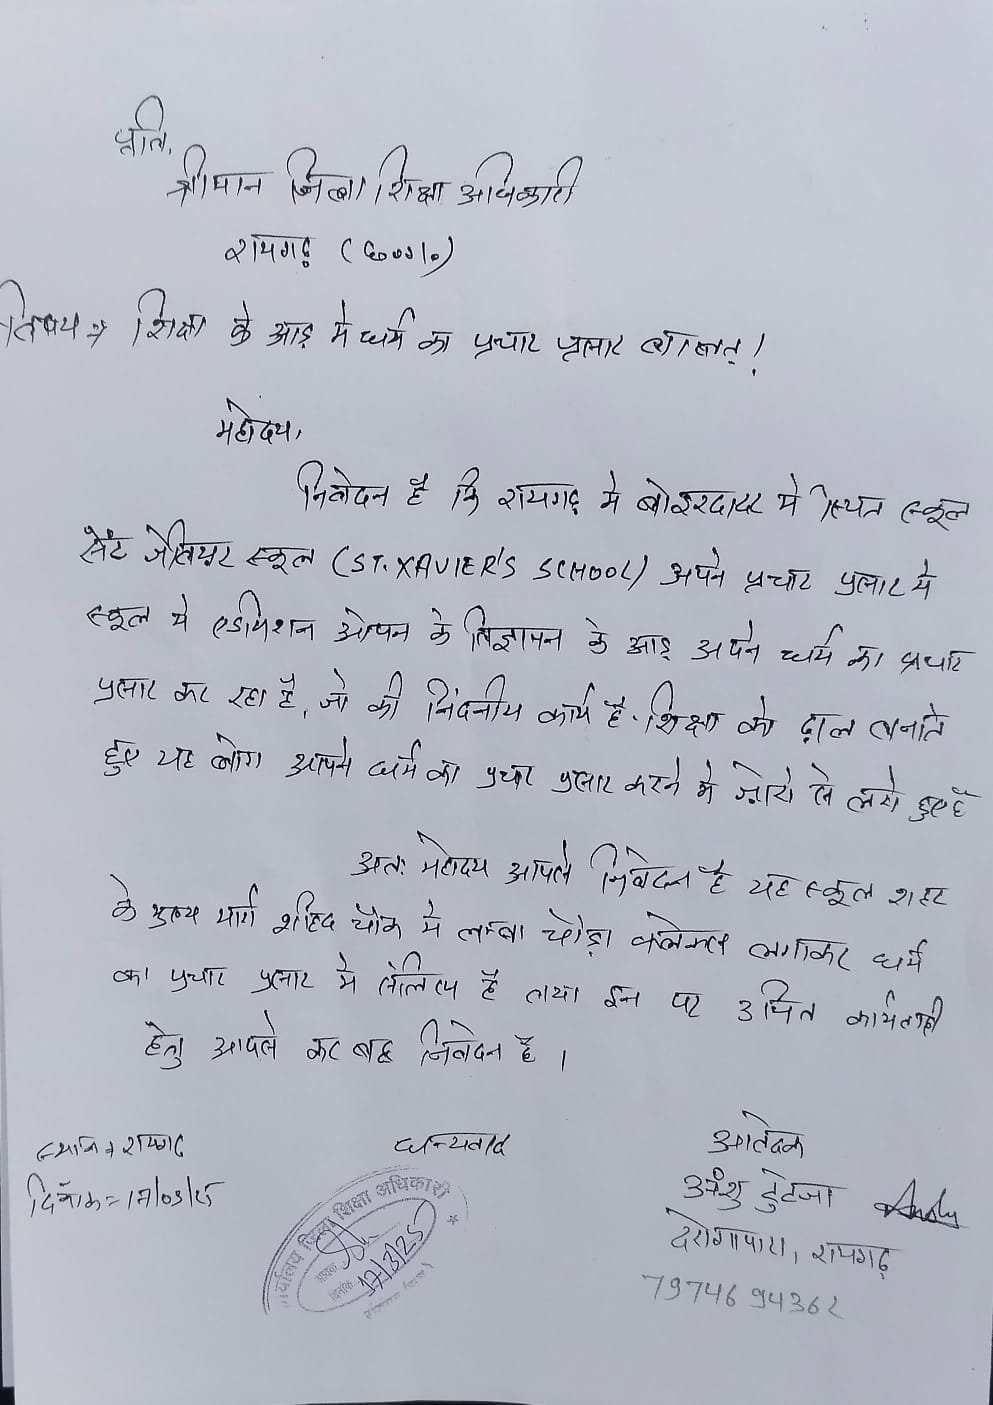 प्रति,
श्रीमान जिला शिक्षा अधिकारी
रायगढ़ (छ०ग०)
विषय → शिक्षा के आड़ मे धर्म का प्रचार प्रसार बाबत्!
महोदय,
निवेदन है कि रायगढ़ मे बोइरदादर मे स्थित स्कूल
सेंट जेवियर स्कूल (ST. XAVIER'S SCHOOL) अपने प्रचार प्रसार मे
स्कूल मे एडमिशन ओपन के विज्ञापन के आड़ अपने धर्म का प्रचार
प्रसार कर रहा है, जो की निंदनीय कार्य है. शिक्षा को ढ़ाल बनाते
हुए यह लोग अपने धर्म का प्रचार प्रसार करने मे ज़ोरो से लगे हुए है
अतः महोदय आपसे निवेदन है यह स्कूल शहर
के मुख्य मार्ग शहिद चौक मे लम्बा चौड़ा फ्लेक्स लगाकर धर्म
का प्रचार प्रसार मे संलिप्त है तथा इन पर उचित कार्यवाही
हेतु आपसे कर बद्ध निवेदन है ।
स्थान → रायगढ़ धन्यवाद आवेदक
दिनाँक = 17/03/25 अंशु टुटेजा
देरोगापारा, रायगढ़
7974694362
कार्यालय जिला शिक्षा अधिकारी
आवक
दिनांक 17/3/25